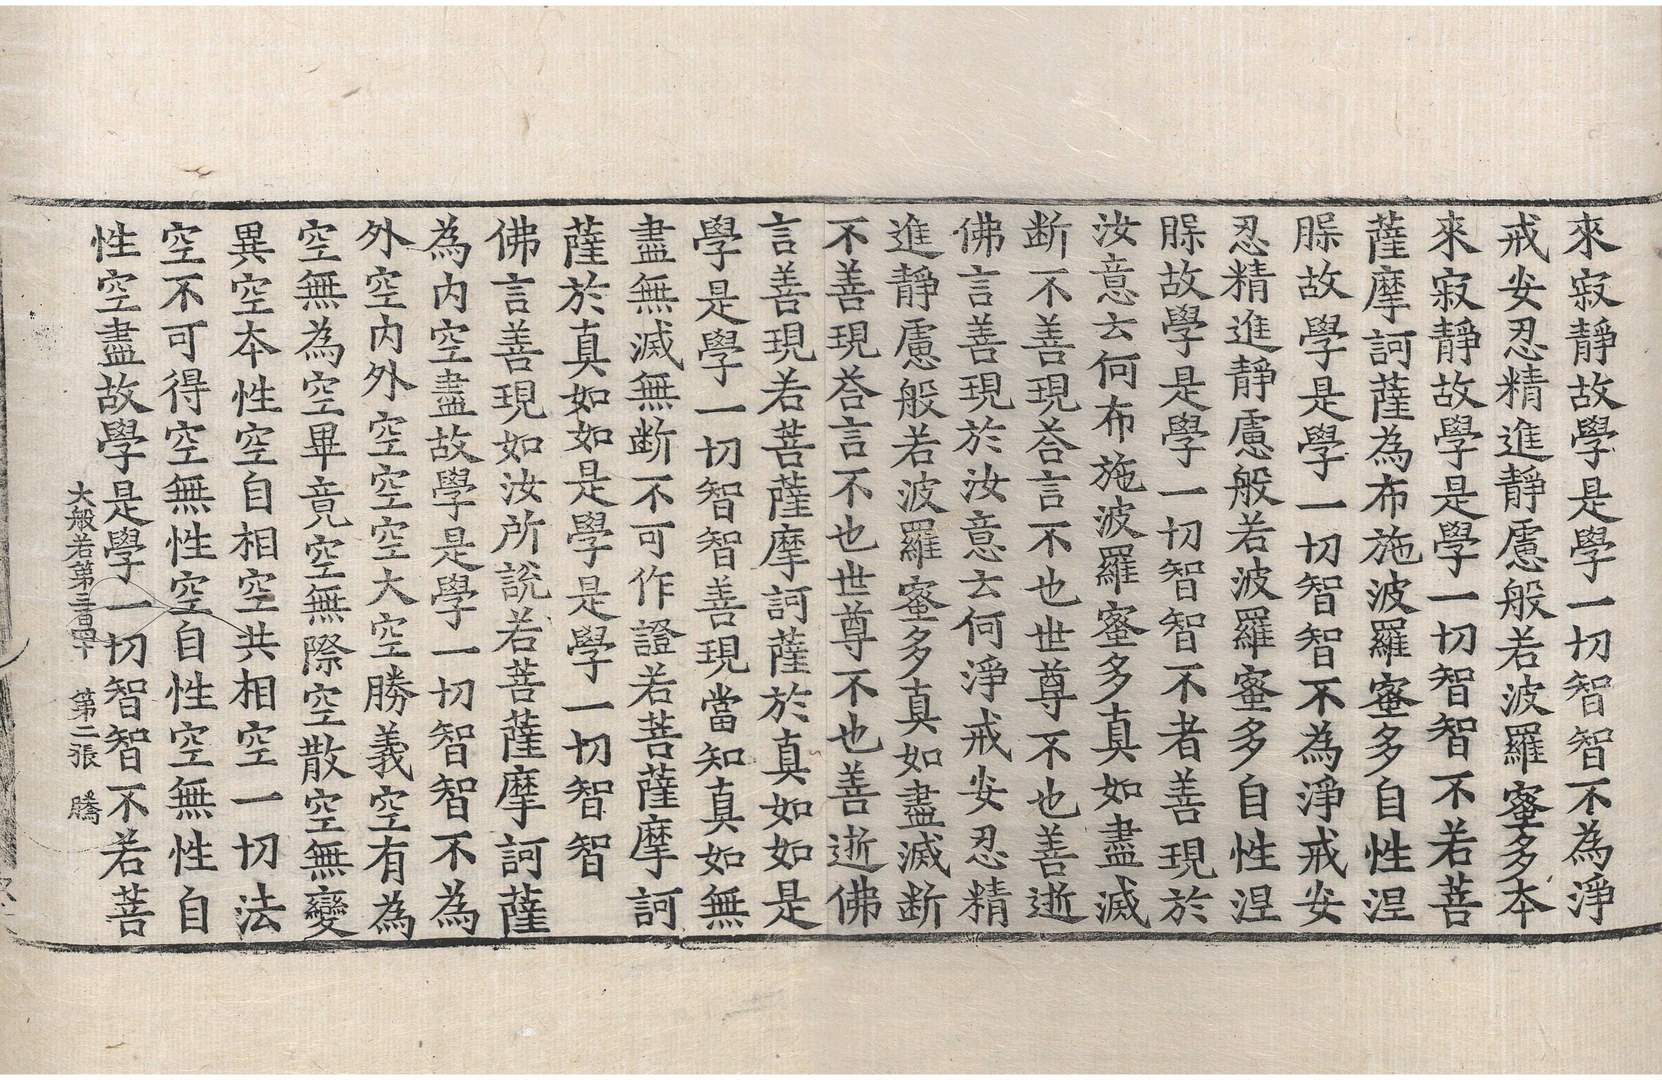 來寂靜故學是學一切智智不為淨
戒安忍精進靜慮般若波羅蜜多本
來寂靜故學是學一切智智不若菩
薩摩訶薩為布施波羅蜜多自性涅
槃故學是學一切智智不為淨戒安
忍精進靜慮般若波羅蜜多自性涅
槃故學是學一切智智不者善現於
汝意去何布施波羅蜜多真如盡滅
断不善現荅言不也世尊不也善逝
佛言善現於汝意去何淨戒安忍精
進靜慮般若波羅蜜多真如盡滅断
不善現荅言不也世尊不也善逝佛
言善現若菩薩摩訶薩於真如如是
學是學一切智智善現當知真如無
盡無滅無断不可作證若菩薩摩訶
薩於真如如是學是學一切智智
佛言善現如汝所說若菩薩摩訶薩
為內空盡故學是學一切智智不為
外空內外空空空大空勝義空有為
空無為空畢竟空無際空散空無變
異空本性空自相空共相空一切法
空不可得空無性空自性空無性自
性空盡故學是學一切智智不若菩
大般若第三百四十 第二張 騰